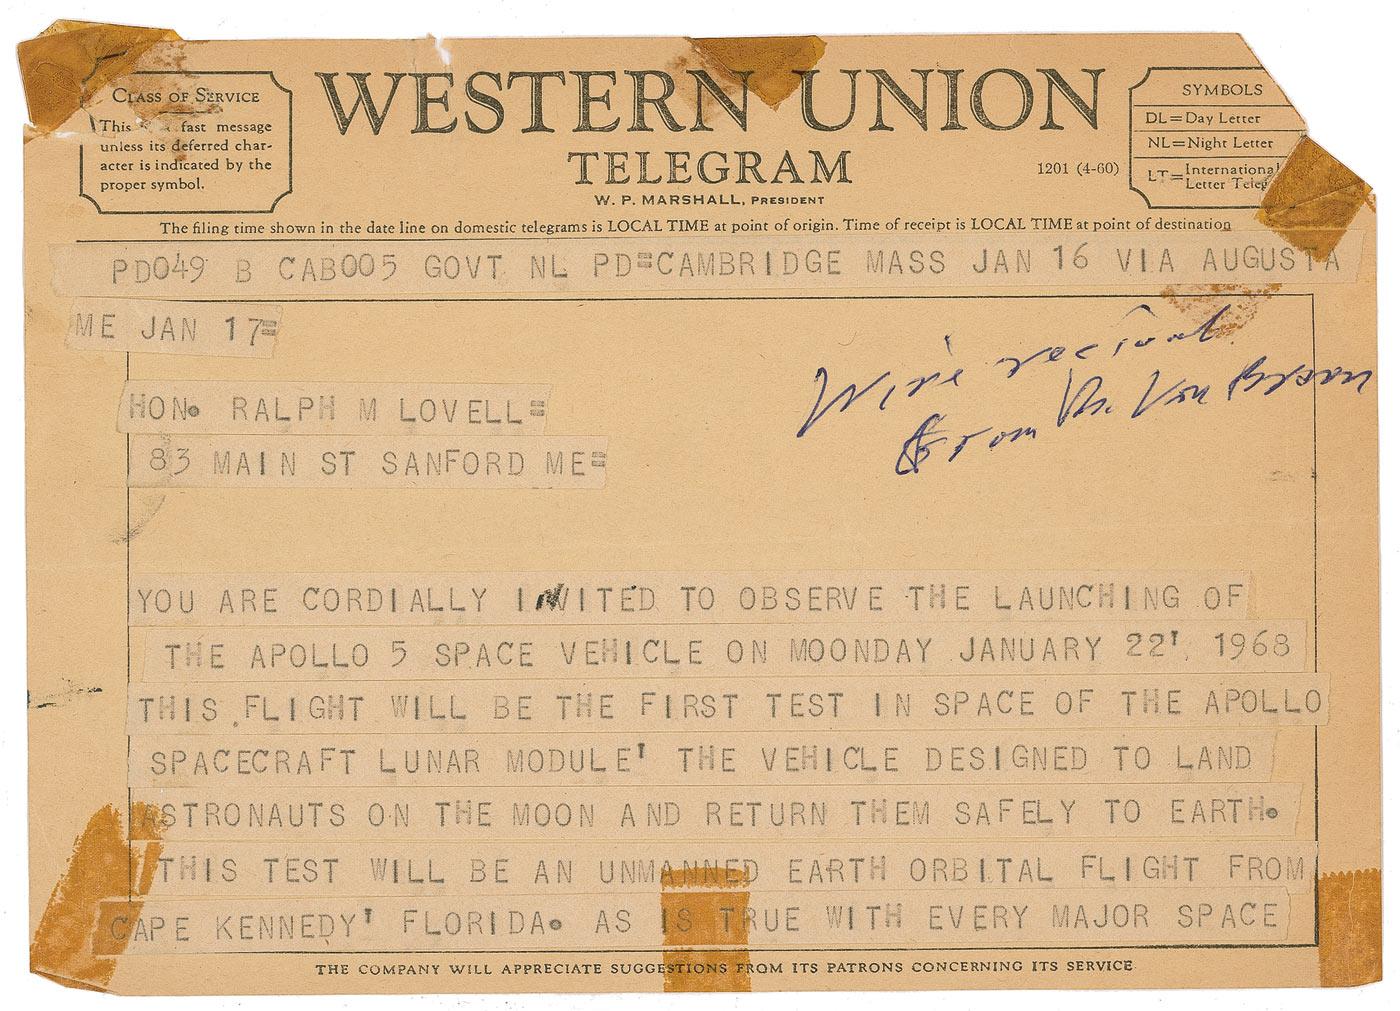 CLASS OF SERVICE
This is a fast message
unless its deferred char-
acter is indicated by the
proper symbol.
WESTERN UNION
TELEGRAM
W. P. MARSHALL, PRESIDENT
1201 (4-60)
SYMBOLS
DL=Day Letter
NL=Night Letter
LT=International
Letter Teleg
The filing time shown in the date line on domestic telegrams is LOCAL TIME at point of origin. Time of receipt is LOCAL TIME at point of destination
PD049 B CAB005 GOVT NL PD=CAMBRIDGE MASS JAN 16 VIA AUGUSTA
ME JAN 17=
HON. RALPH M LOVELL=
83 MAIN ST SANFORD ME=
Wire
from Dr. Von
YOU ARE CORDIALLY INVITED TO OBSERVE THE LAUNCHING OF
THE APOLLO 5 SPACE VEHICLE ON MOONDAY JANUARY 22' 1968
THIS FLIGHT WILL BE THE FIRST TEST IN SPACE OF THE APOLLO
SPACECRAFT LUNAR MODULE' THE VEHICLE DESIGNED TO LAND
ASTRONAUTS ON THE MOON AND RETURN THEM SAFELY TO EARTH.
THIS TEST WILL BE AN UNMANNED EARTH ORBITAL FLIGHT FROM
CAPE KENNEDY' FLORIDA. AS IS TRUE WITH EVERY MAJOR SPACE
THE COMPANY WILL APPRECIATE SUGGESTIONS FROM ITS PATRONS CONCERNING ITS SERVICE